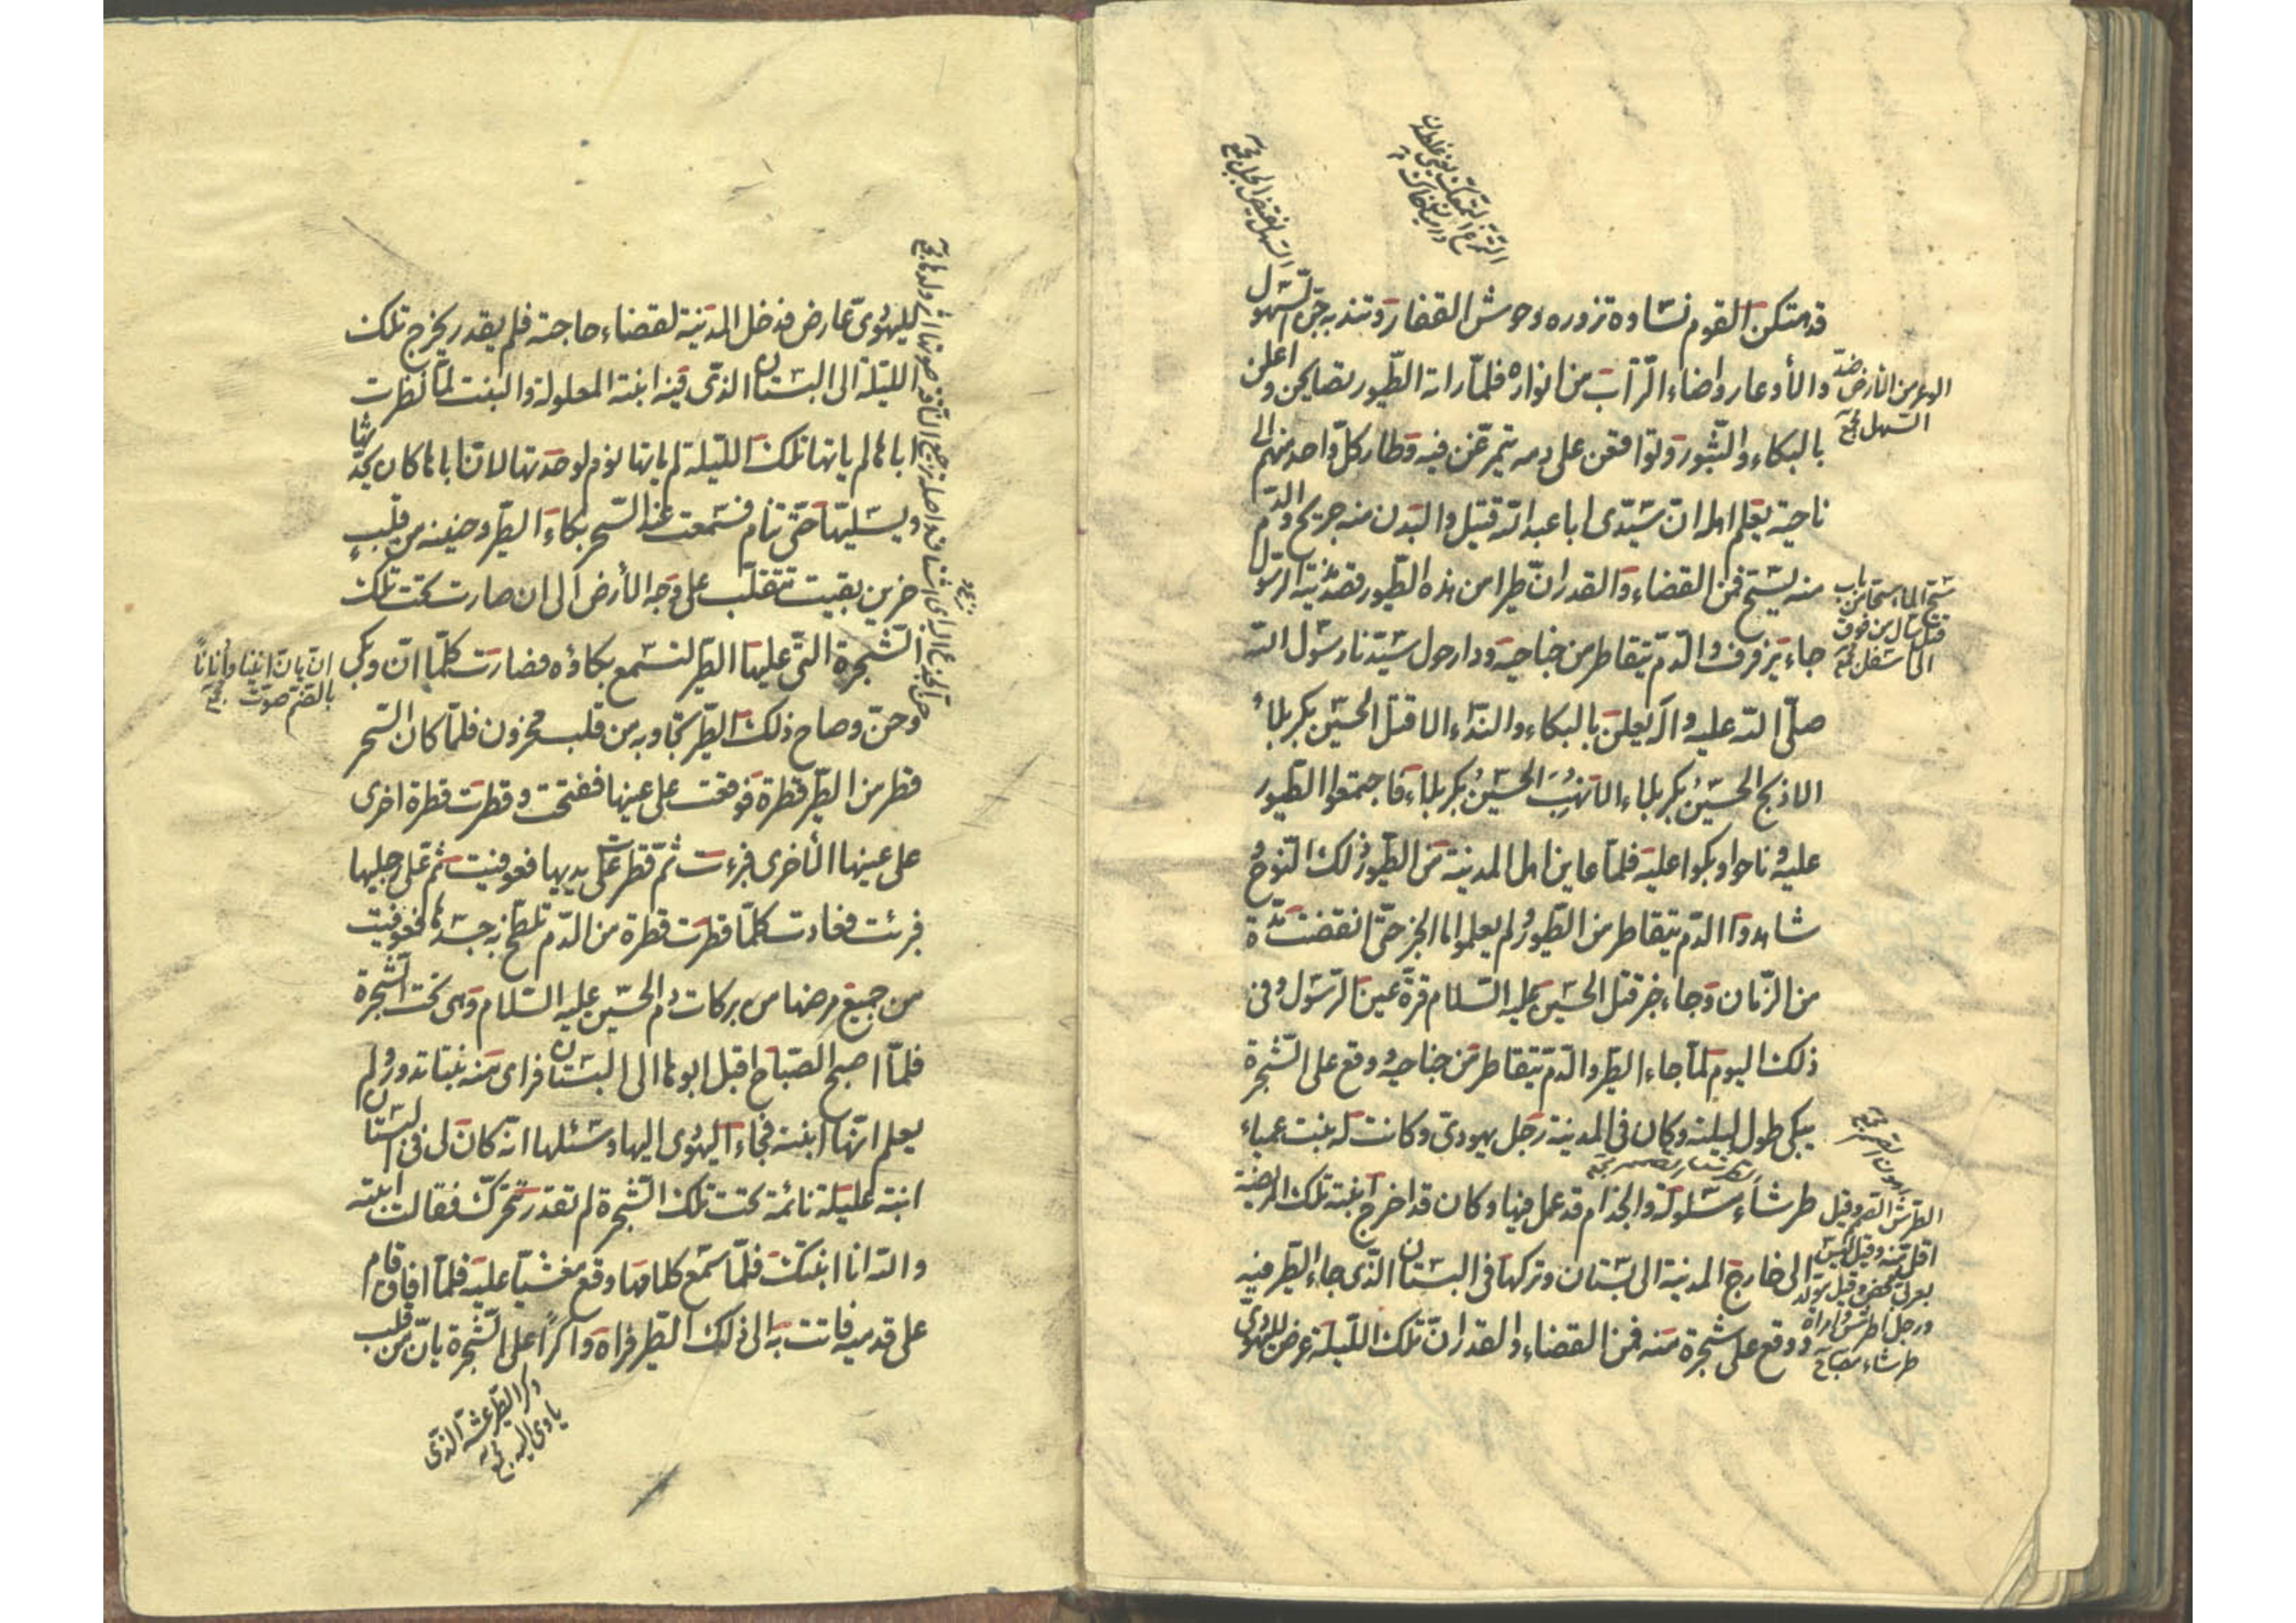 قد هتكن القوم نساؤه تزوره وحوش القفار وتندبه جن السهول
والأوعار واضاء التراب من انواره فلما راته الطيور تصايحن واعلن
بالبكاء والثبور وتواقعن على دمه يتمرغن فيه وطار كل واحد منهم الى
ناحية يعلم اهلها ان سيدى ابا عبد الله قتيل والبدن منه جريح والدم
منه يسيح فمن القضاء والقدر ان طيرا من هذه الطيور قصد مدينة الرسول
جاء يزفرف والدم يتقاطر من جناحيه ودار حول سيدنا رسول الله
صلى الله عليه وآله يعلن بالبكاء والنداء الا قتل الحسين بكربلاء
الا ذبح الحسين بكربلاء الا نهب الحسين بكربلاء فاجتمعوا الطيور
عليه وناحوا وبكوا عليه فلما عاين اهل المدينة من الطيور ذلك النوح و
شاهدوا الدم يتقاطر من الطيور ولم يعلموا ما الخبر حتى انقضت مدة
من الزمان وجاء خبر قتل الحسين عليه السلام قرة عين الرسول وفى
ذلك اليوم لما جاء الطير والدم يتقاطر من جناحيه ووقع على الشجرة
يبكى طول ليلته وكان فى المدينة رجل يهودى وكانت له بنت عمياء
طرشاء مشلولة والجذام قد عمل فيها وكان قد اخرج ابنته تلك المريضة
الى خارج المدينة الى بستان وتركها فى البستان الذى جاء الطير فيه
ووقع على شجرة منه فمن القضاء والقدر ان تلك الليلة عرض لليهودى
السهل نقيض الجبل
الوعر من الأرض ضد
السهل
سح الماء سحا من باب
قتل سال من فوق
الى اسفل
الطرش الصمم وقيل
اقل منه وقيل ليس
بعربى محض وقيل مولد
ورجل اطرش وامراة
طرشاء مصباح
لليهودى عارض فدخل المدينة لقضاء حاجته فلم يقدر يخرج تلك
الليلة الى البستان الذى فيه ابنته المعلولة والبنت لما نظرت
اباها لم ياتها تلك الليلة لم ياتها نوم لوحدتها لان اباها كان يحدثها
ويسليها حتى تنام فسمعت عند السحر بكاء الطير وحنينه من قلب
حزين بقيت تتقلب على وجه الأرض الى ان صارت تحت تلك
الشجرة التى عليها الطير لتسمع بكاؤه فصارت كلما ان وبكى
وحن وصاح ذلك الطير تجاوبه من قلب محزون فلما كان السحر
قطر من الطير قطرة فوقعت على عينها ففتحت وقطرت قطرة اخرى
على عينها الأخرى فبرءت ثم قطرت على يديها فعوفيت ثم على رجليها
فبرئت فعادت كلما قطرت قطرة من الدم تلطخ به جسدها فعوفيت
من جميع مرضها من بركات دم الحسين عليه السلام وهى تحت الشجرة
فلما اصبح الصباح اقبل ابوها الى البستان فراى منه بنتا تدور ولم
يعلم انها ابنته فجاء اليهودى اليها وسئلها انه كان لى فى البستان
ابنة عليلة نائمة تحت تلك الشجرة لم تقدر تتحرك فقالت ابنته
والله انا ابنتك فلما سمع كلامها وقع مغشيا عليه فلما افاق قام
على قدميه فاتت به الى ذلك الطير فراه واكرا على الشجرة يان من قلب
ان يان انينا وأنانا
بالضم صوت
وكر الطير عشه الذى
ياوى اليه